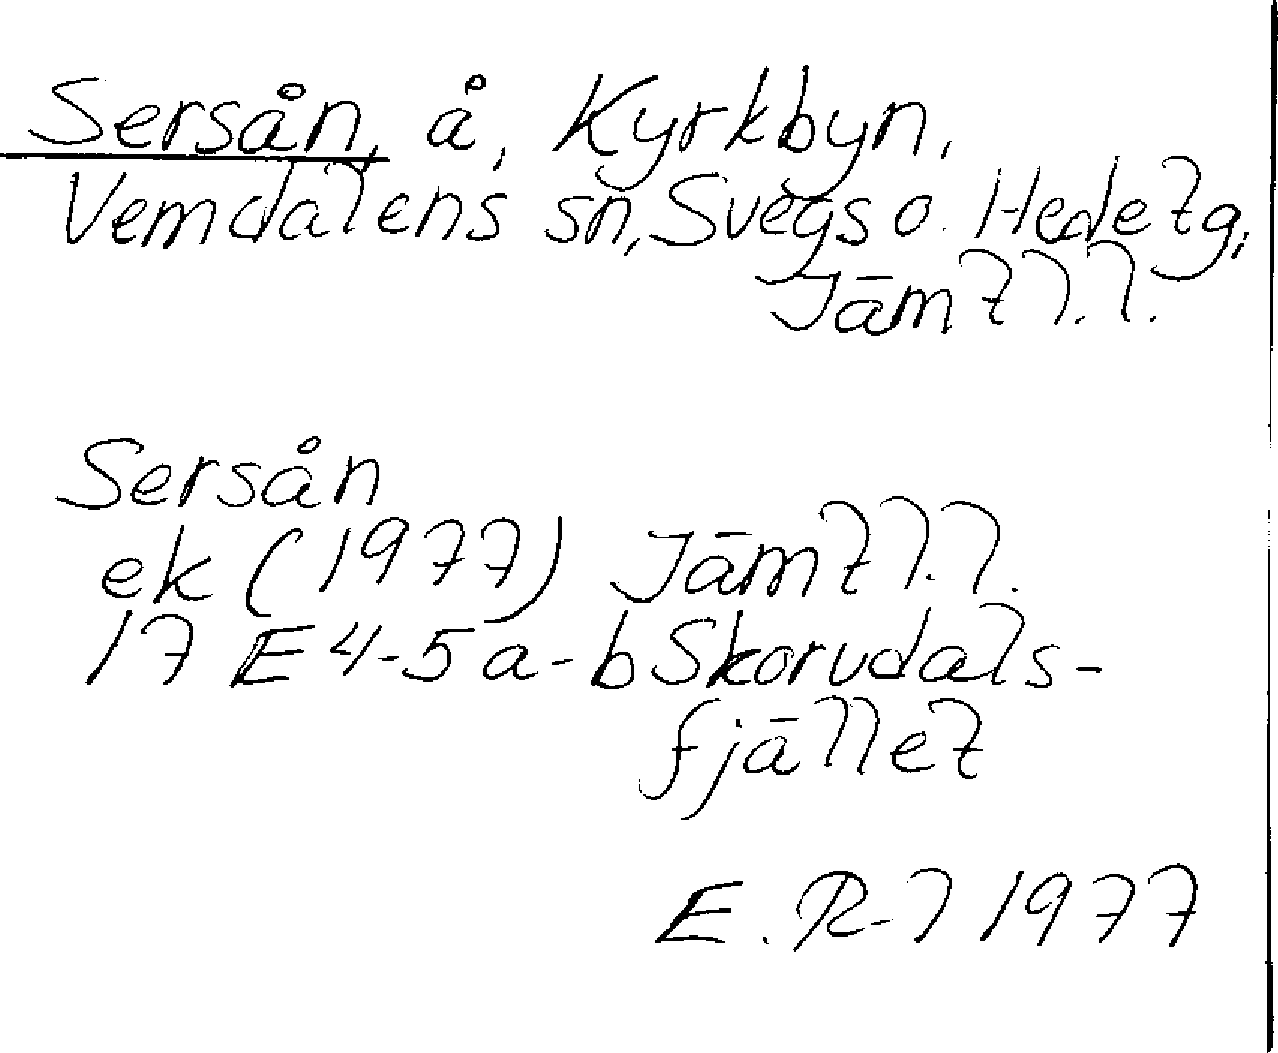 Sersån, å, Kyrkbyn,
Vemdalens sn, Svegs o. Hede tg,
Jämtl. l.
Sersån
ek (1977) Jämtl. l.
17 E 4-5 a-b Skorvdals-
fjället
E. R-l 1977